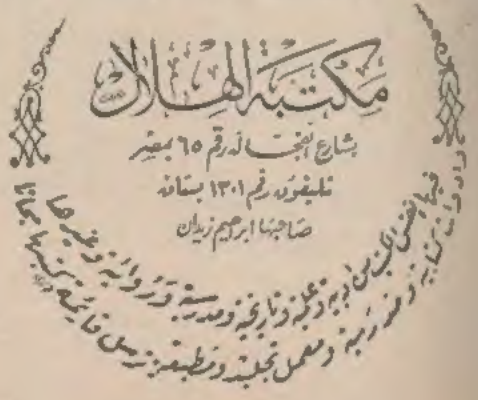 مكتبة الهلال
بشارع الفجاله رقم ٦٥ بمصر
تليفون رقم ١٣٠١ بستان
صاحبها ابراهيم زيدان
فيها نفس الكتب من ادبية وعلمية وتاريخية ومدرسية وروائية وغيرها
وادوات كتابية ومدرسية ومعمل تجليد ومطبعة وترسل قائمة كتبها مجانا